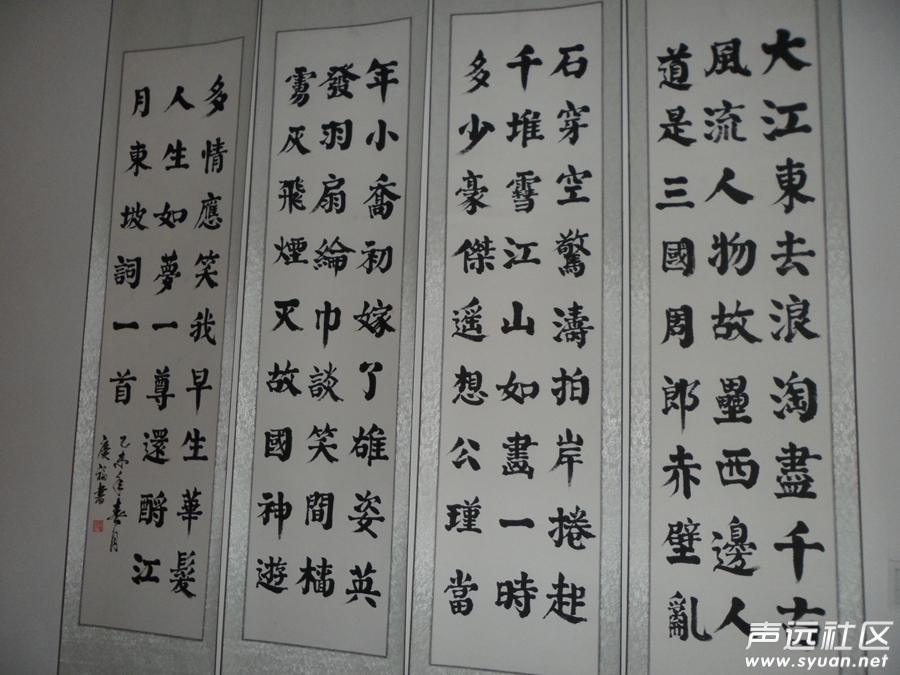 大江東去浪淘盡千古
風流人物故壘西邊人
道是三國周郎赤壁亂
石穿空驚濤拍岸捲起
千堆雪江山如畫一時
多少豪傑遥想公瑾當
年小喬初嫁了雄姿英
發羽扇綸巾談笑間檣
灰飛煙灭故國神遊
多情應笑我早生華髮
人生如夢一尊還酹江
月東坡詞一首
乙未年春月
書
声远社区
www.syuan.net